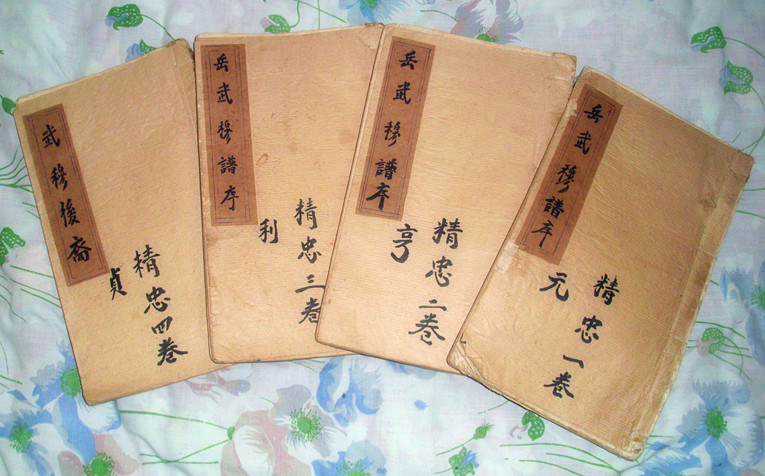 岳武穆譜序
精忠一巻
元
岳武穆譜序
精忠二巻
亨
岳武穆譜序
精忠三巻
利
武穆後裔
精忠四巻
貞